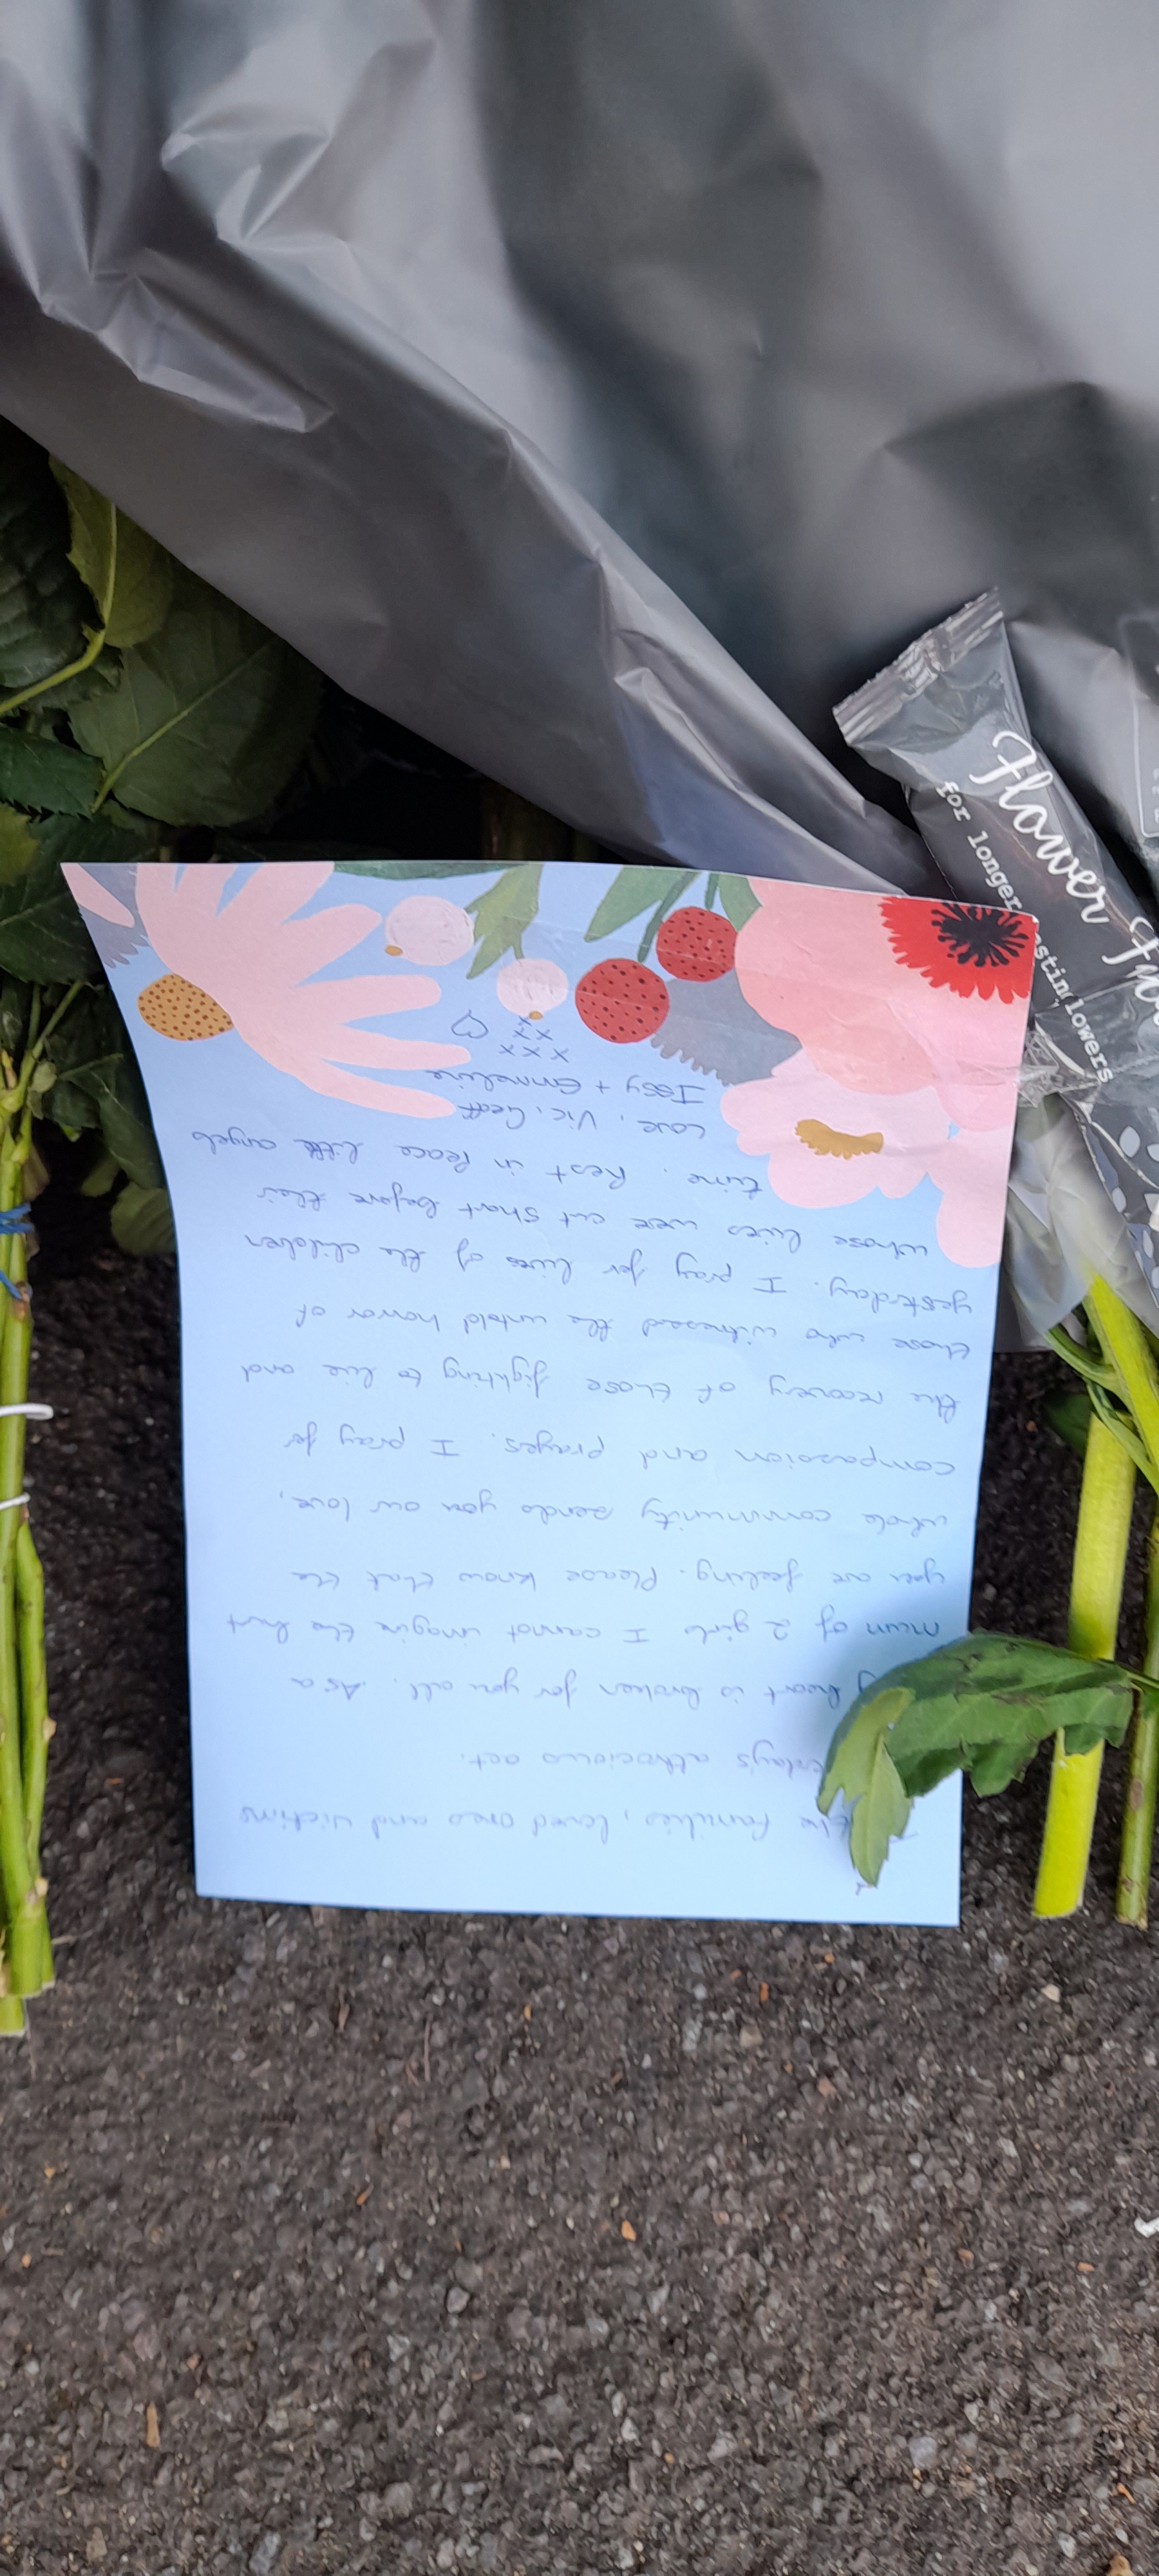 the families, loved ones and victims
erday's athrocious act.
heart is broken for you all. As a
mum of 2 girls I cannot imagine the hurt
you are feeling. Please know that the
whole community sends you our love,
compassion and prayers. I pray for
the recovery of those fighting to live and
those who witnessed the untold horror of
yesterday. I pray for lives of the children
whose lives were cut short before their
time. Rest in Peace little angels
Love, Vic, Geoff
Issy + Emmeline
xxx
xxx ♡
Flower
for longer lasting flowers